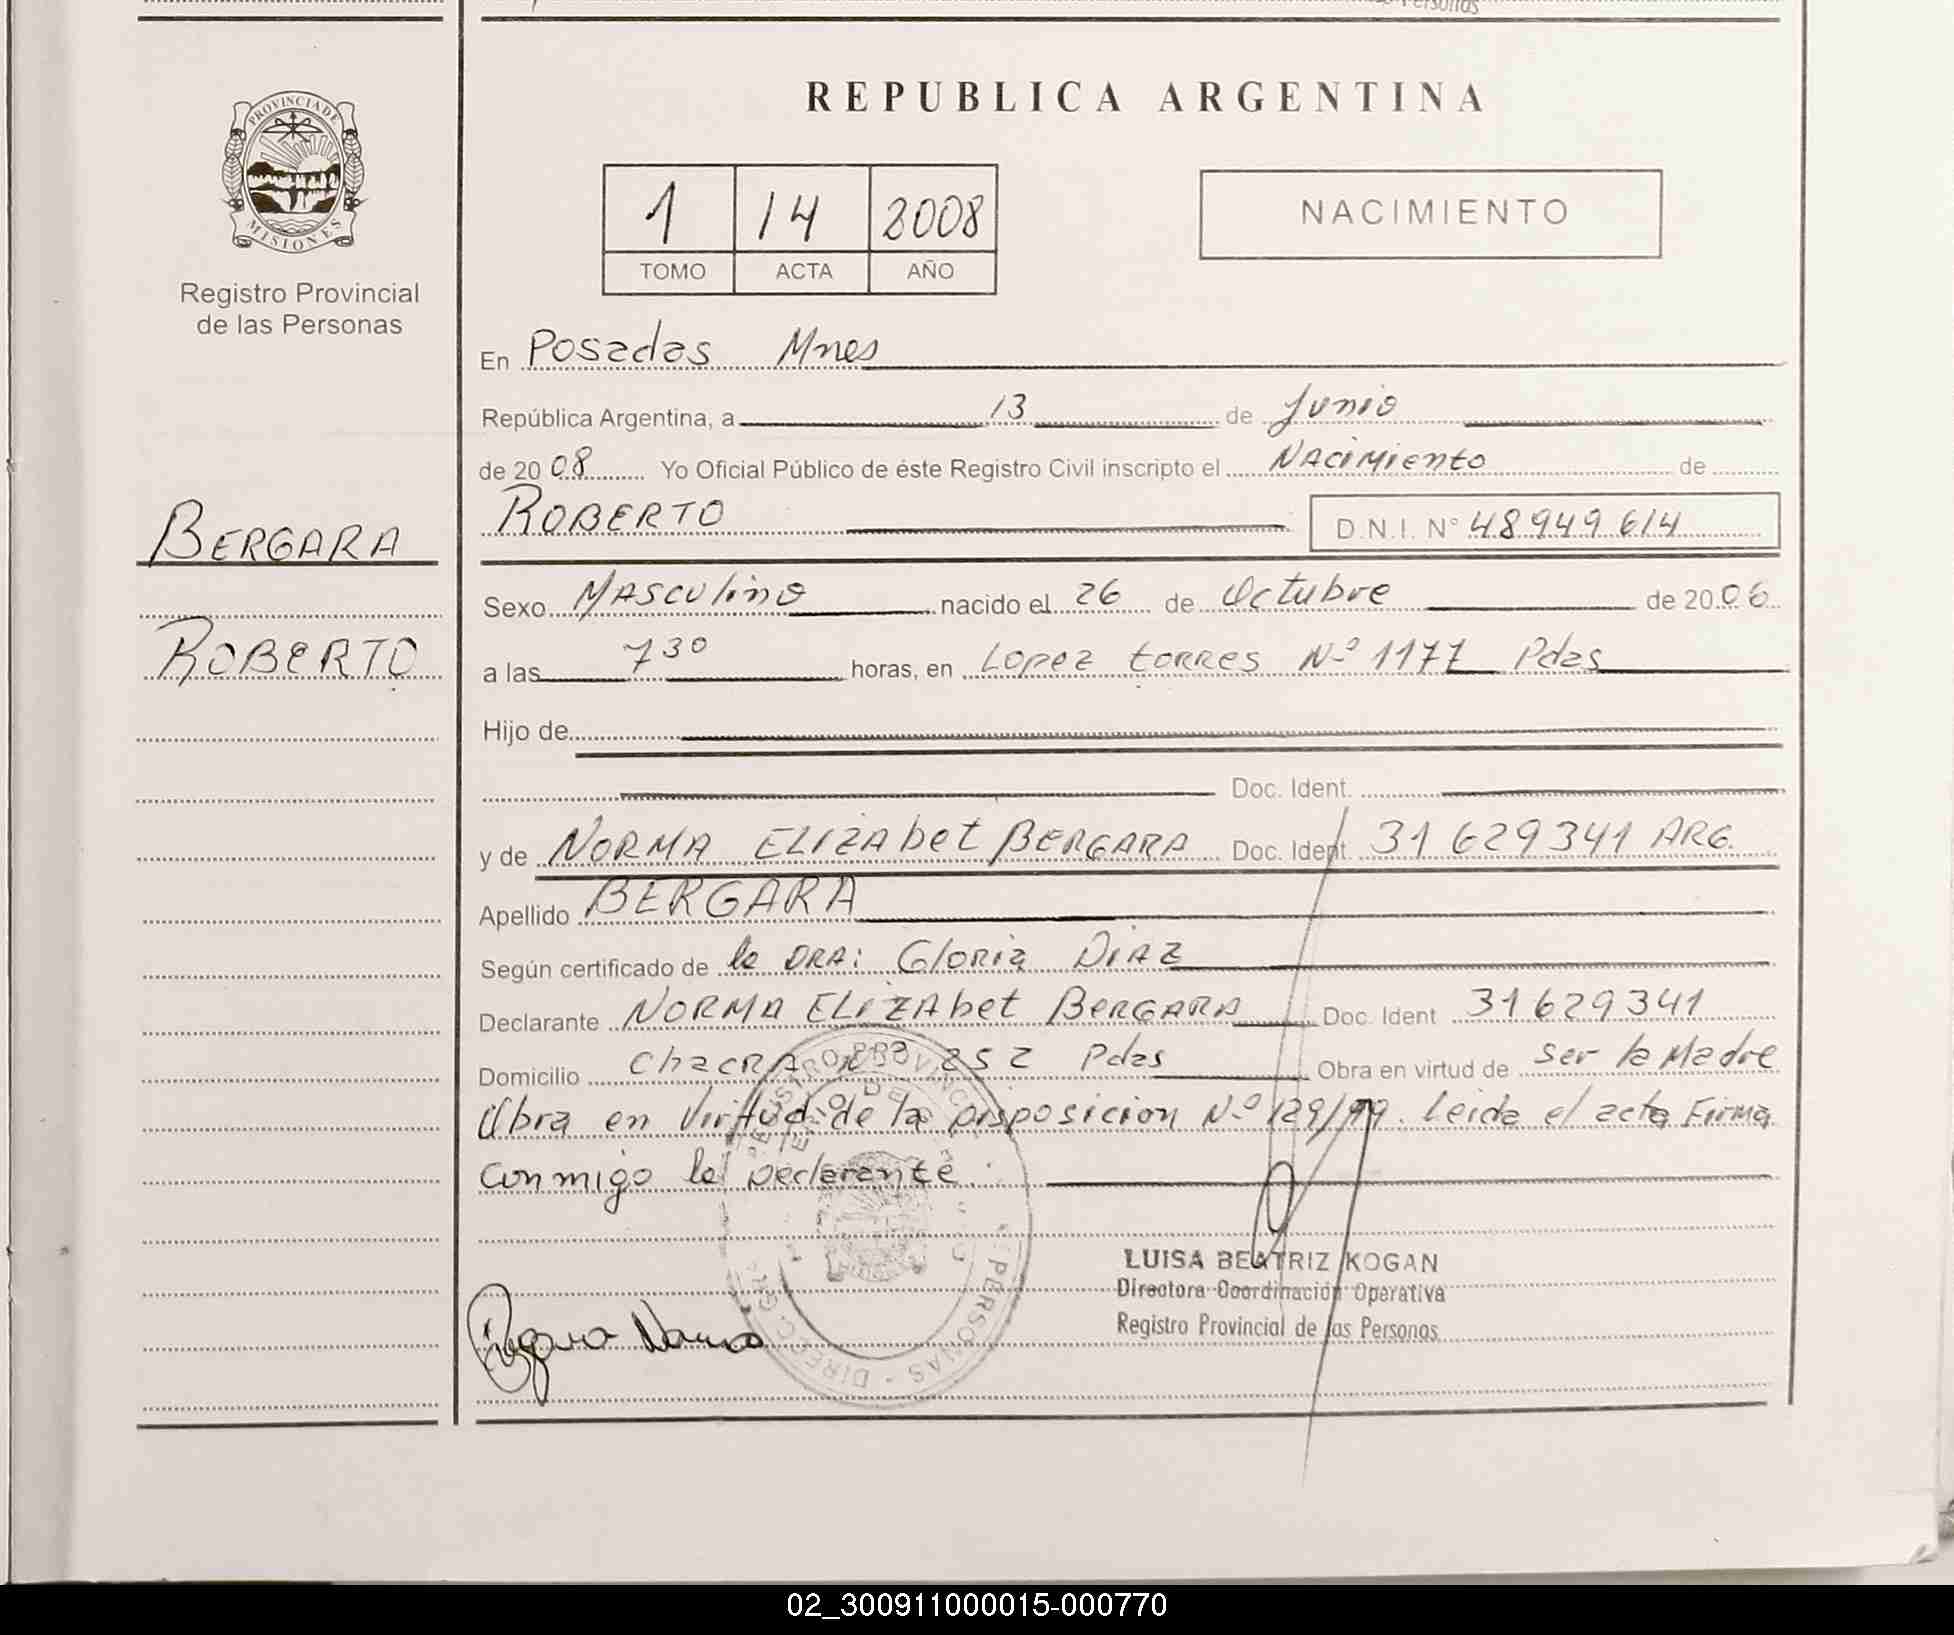 Personas
PROVINCIA DE
MISIONES
Registro Provincial
de las Personas
BERGARA
ROBERTO
REPUBLICA ARGENTINA
1 14 2008
TOMO ACTA AÑO
NACIMIENTO
En Posadas Mnes
República Argentina, a 13 de Junio
de 20 08 Yo Oficial Público de éste Registro Civil inscripto el Nacimiento de
ROBERTO D.N.I. N° 48949614
Sexo Masculino nacido el 26 de Octubre de 20 06
a las 7 30 horas, en Lopez torres Nº 1177 Pdas
Hijo de
Doc. Ident.
y de NORMA ELIZAbet BERGARA Doc. Ident. 31 629341 ARG.
Apellido BERGARA
Según certificado de la DRA: Gloria Diaz
Declarante NORMA ELIZAbet BERGARA Doc. Ident 31629341
Domicilio Chacra Nº 252 Pdas Obra en virtud de ser la Madre
Obra en virtud de la Disposicion Nº 129/99. Leida el acta Firma
conmigo la Declarante.
LUISA BEATRIZ KOGAN
Directora Coordinación Operativa
Registro Provincial de las Personas
Bergara Norma
02_300911000015-000770